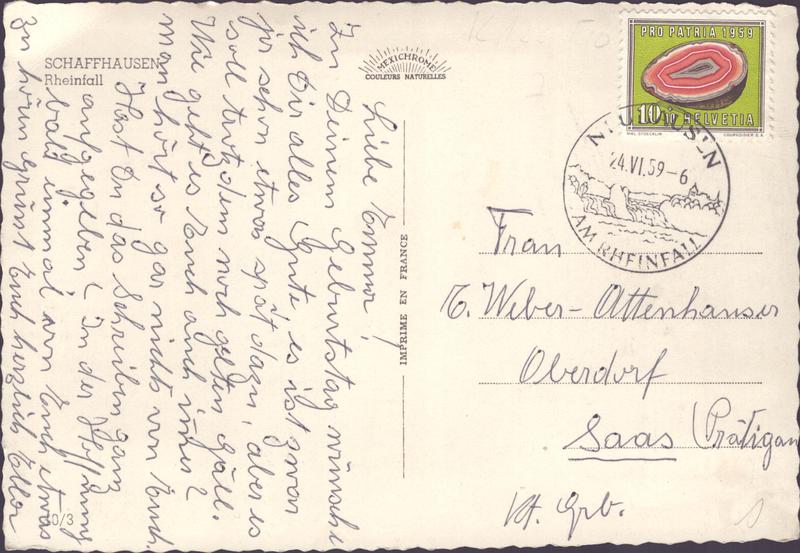 SCHAFFHAUSEN
Rheinfall
MEXICHROME
COULEURS NATURELLES
IMPRIME EN FRANCE
Liebe Emma!
Zu Deinem Geburtstag wünsche
ich Dir alles Gute es ist zwar
ja schon etwas spät dazu, aber es
soll trotzdem noch gelten gäll.
Wie geht es Euch auch immer?
man hört so gar nichts von Euch.
Hast Du das Schreiben ganz
aufgegeben? In der Hoffnung
bald einmal von Euch etwas
zu hören grüsst Euch herzlich
10/3
PRO PATRIA 1959
10+10 HELVETIA
COURVOISIER S.A.
NEUHAUSEN
24.VI.59-6
AM RHEINFALL
Frau
E. Weber-Attenhauser
Oberdorf
Saas (Prätigau
Kt. Grb.